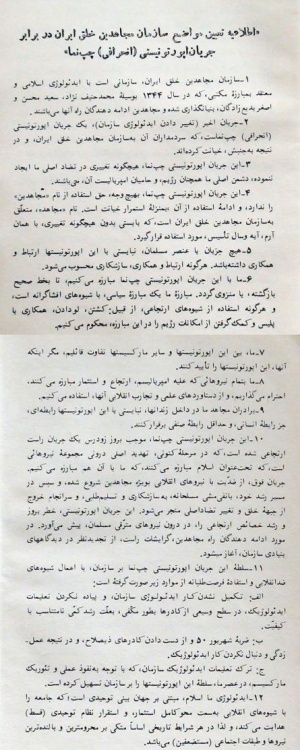 «اطلاعیه تعیین مواضع سازمان مجاهدین خلق ایران در برابر
جریان اپورتونیستی (انحرافی) چپ‌نما»
۱-سازمان مجاهدین خلق ایران، سازمانی است با ایدئولوژی اسلامی و
معتقد بمبارزهٔ مکتبی، که در سال ۱۳۴۴ بوسیلهٔ محمدحنیف نژاد، سعید محسن و
اصغر بدیع‌زادگان، بنیانگذاری شده و مجاهدین ادامه دهندگان راه آنها می‌باشند.
۲-جریان اخیر (تغییر دادن ایدئولوژی سازمان)، یک جریان اپورتونیستی
(انحرافی) چپ‌نماست، که سردمداران آن به‌سازمان مجاهدین خلق ایران، و در
نتیجه به‌جنبش، خیانت کرده‌اند.
۳-این جریان اپورتونیستی چپ‌نما، هیچگونه تغییری در تضاد اصلی ما ایجاد
ننموده، دشمن اصلی ما همچنان رژیم، و حامیان امپریالیست آن، می‌باشند.
۴-این جریان اپورتونیستی چپ‌نما، بهیچ‌وجه، حق استفاده از نام «مجاهدین»
را ندارد، و ادامهٔ استفاده از آن بمنزلهٔ استمرار خیانت است. نام «مجاهد»، متعلق
به‌سازمان مجاهدین خلق ایران است، که بایستی بدون هیچگونه تغییری، با همان
آرم، آیه و سال تأسیس، مورد استفاده قرار گیرد.
۵-هیچ جریان یا عنصر مسلمان، نبایستی با این اپورتونیستها ارتباط و
همکاری داشته‌باشد. هرگونه ارتباط و همکاری، سازشکاری محسوب می‌شود.
۶-ما با این جریان اپورتونیستی چپ‌نما مبارزه می‌کنیم، تا بخط صحیح
بازگشته، یا منزوی گردد. مبارزهٔ ما یک مبارزهٔ سیاسی، با شیوه‌های افشاگرانه است،
و هرگونه استفاده از شیوه‌های ارتجاعی، از قبیل: کشتن، لودادن، همکاری با
پلیس و کمک گرفتن از امکانات رژیم را در این مبارزه، محکوم می‌کنیم.
۷-ما، بین این اپورتونیستها و سایر مارکسیستها تفاوت قائلیم، مگر اینکه
آنها، این اپورتونیستها را تأیید کنند.
۸-ما بتمام نیروهائی که علیه امپریالیسم، ارتجاع و استثمار مبارزه می‌کنند،
احترام می‌گذاریم، و از دستاوردهای علمی و تجارب انقلابی آنها، استفاده می‌کنیم.
۹-برادران مجاهد ما در داخل زندانها، نبایستی با این اپورتونیستها رابطه‌ای،
جز رابطهٔ انسانی، و حداقل رابطهٔ صنفی برقرار کنند.
۱۰-این جریان اپورتونیستی چپ‌نما، موجب بروز زودرس یک جریان راست
ارتجاعی شده است، که در مرحلهٔ کنونی، تهدید اصلی درونی مجموعهٔ نیروهائی
است، که تحت‌عنوان اسلام مبارزه می‌کنند، که ما با آن هم مبارزه می‌کنیم.
جریان فوق، از ضدیت با نیروهای انقلابی بویژه مجاهدین شروع شده، و سپس در
مسیر رشد خود، بانفی‌مشی مسلحانه، به‌سازشکاری و تسلیم‌طلبی، و سرانجام خروج
از جبههٔ خلق و تغییر تضاد اصلی منجر می‌شود. این جریان اپورتونیستی، خطر بروز
و رشد خصائص ارتجاعی را، در درون نیروهای مترقی مسلمان، پیش می‌آورد. در
مورد ادامه دهندگان راه مجاهدین، گرایشات راست، از تجدیدنظر در دیدگاههای
بنیادی سازمان، آغاز میشود.
۱۱-سلطهٔ این جریان اپورتونیستی چپ‌نما بر سازمان، با اعمال شیوه‌های
ضدانقلابی و استفادهٔ فرصت‌طلبانه از موارد زیر صورت گرفته است:
الف: تکمیل نشدن کار ایدئولوژی سازمان، و پیاده نکردن تعلیمات
ایدئولوژیک، در سطح وسیعی از کادرها بطور مکفی، بعلت رشد کمی نامتناسب با
کیفیت.
ب: ضربهٔ شهریور ۵۰ و از دست دادن کادرهای ذیصلاح، و در نتیجه عمل‌-
زدگی و دنبال نکردن کار ایدئولوژیک.
ج: ترک تعلیمات ایدئولوژیک سازمان، که با توجه به‌نفوذ عملی و تئوریک
مارکسیسم، در عصر ما، سلطهٔ این اپورتونیستها را بر سازمان تسهیل کرده است.
۱۲-ایدئولوژی ما اسلام، مبتنی بر جهان بینی توحیدی است، که جامعه را
با شیوه‌های انقلابی به‌سمت محو کامل استثمار، و استقرار نظام توحیدی (قسط)
هدایت می‌کند، و لذا در هر شرایط تاریخی اساساً متکی بر محرومترین و بالنده‌ترین
نیروها و طبقات اجتماعی (مستضعفین) می‌باشد.